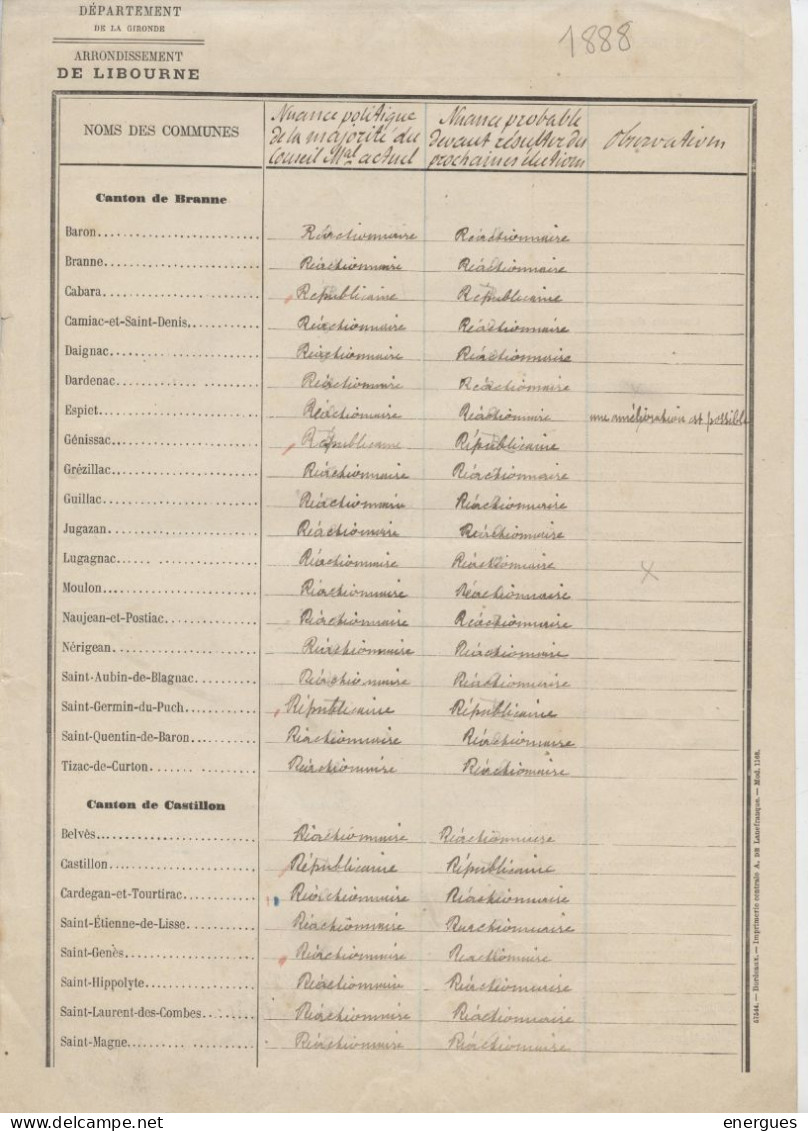 DÉPARTEMENT
DE LA GIRONDE
ARRONDISSEMENT
DE LIBOURNE
1888
NOMS DES COMMUNES
Nuance politique de la majorité du Conseil Mal actuel
Nuance probable devant résulter des prochaines élections
Observations
Canton de Branne
Baron Réactionnaire Réactionnaire
Branne Réactionnaire Réactionnaire
Cabara Républicaine Républicaine
Camiac-et-Saint-Denis Réactionnaire Réactionnaire
Daignac Réactionnaire Réactionnaire
Dardenac Réactionnaire Réactionnaire
Espiet Réactionnaire Réactionnaire une amélioration est possible
Génissac Républicaine Républicaine
Grézillac Réactionnaire Réactionnaire
Guillac Réactionnaire Réactionnaire
Jugazan Réactionnaire Réactionnaire
Lugagnac Réactionnaire Réactionnaire X
Moulon Réactionnaire Réactionnaire
Naujean-et-Postiac Réactionnaire Réactionnaire
Nérigean Réactionnaire Réactionnaire
Saint-Aubin-de-Blagnac Réactionnaire Réactionnaire
Saint-Germin-du-Puch Républicaine Républicaine
Saint-Quentin-de-Baron Réactionnaire Réactionnaire
Tizac-de-Curton Réactionnaire Réactionnaire
Canton de Castillon
Belvès Réactionnaire Réactionnaire
Castillon Républicaine Républicaine
Cardegan-et-Tourtirac Réactionnaire Réactionnaire
Saint-Étienne-de-Lisse Réactionnaire Réactionnaire
Saint-Genès Réactionnaire Réactionnaire
Saint-Hippolyte Réactionnaire Réactionnaire
Saint-Laurent-des-Combes Réactionnaire Réactionnaire
Saint-Magne Réactionnaire Réactionnaire
Bordeaux. — Imprimerie centrale A. de Lanefranque. — Mod. 1168.
energues